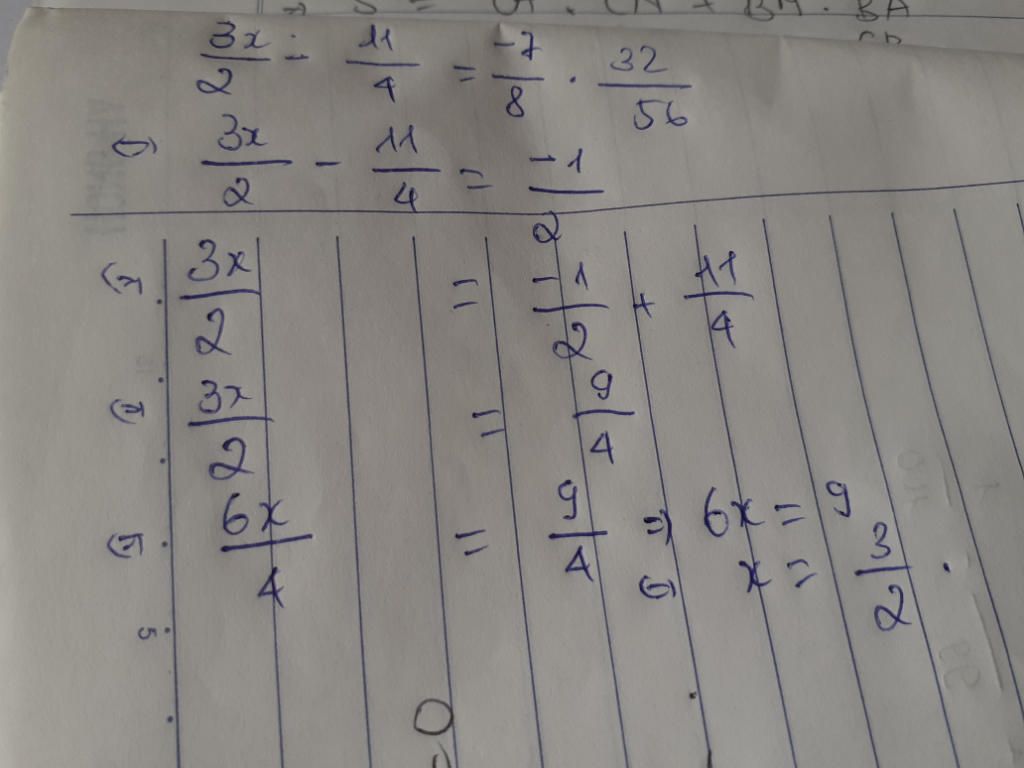 3x/2 - 11/4 = -7/8 . 32/56
⇔ 3x/2 - 11/4 = -1/2
⇔ 3x/2 = -1/2 + 11/4
⇔ 3x/2 = 9/4
⇔ 6x/4 = 9/4 ⇒ 6x = 9
⇔ x = 3/2.
5